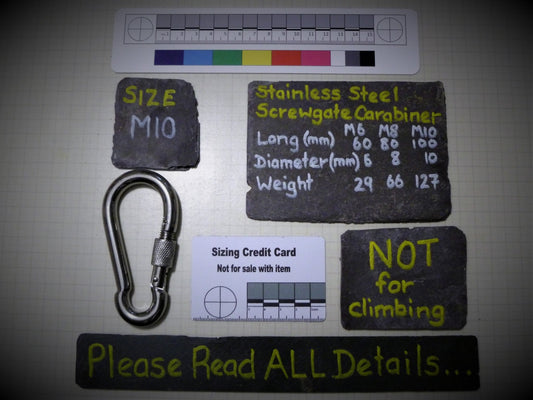 SIZE
M10
Stainless Steel
Screwgate Carabiner
M6 M8 M10
Long (mm) 60 80 100
Diameter (mm) 6 8 10
Weight 29 66 127
Sizing Credit Card
Not for sale with item
NOT
for
climbing
Please Read ALL Details...